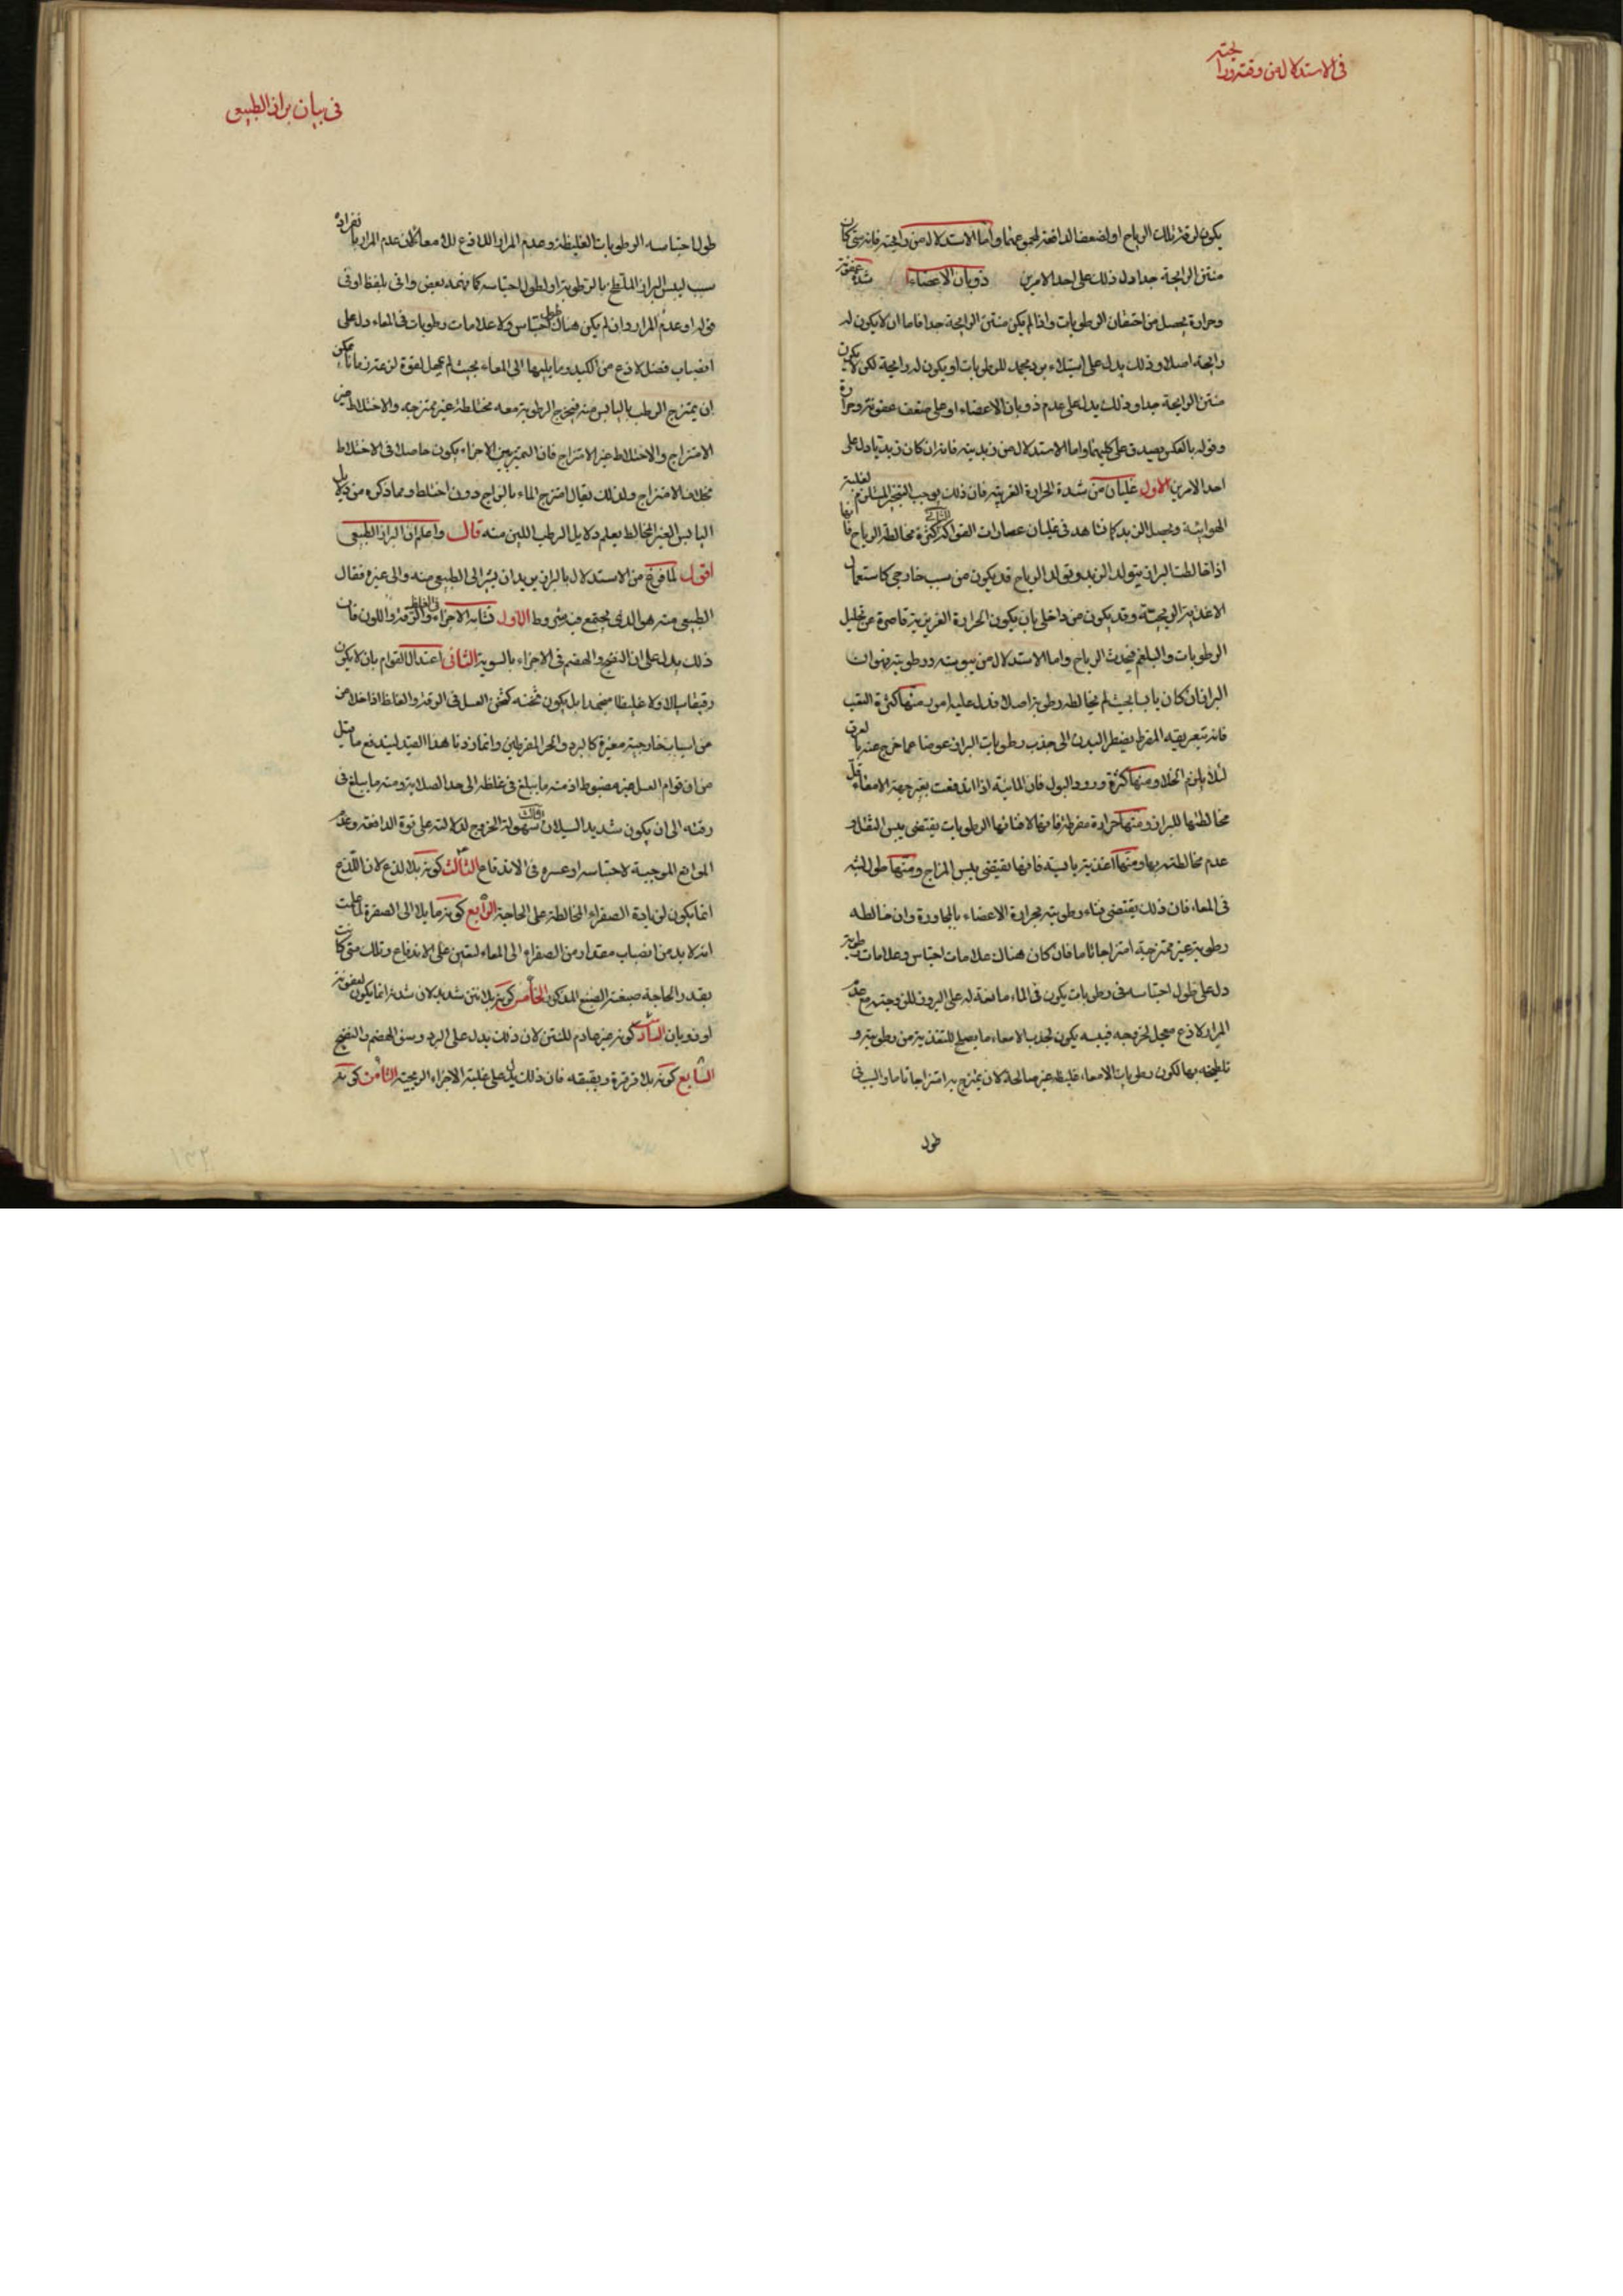 في الاستدلال من وقته ورايحته
يكون لرقة تلك الرياح او لضعف الدافعة او لمجموعهما واما الاستدلال من رايحته فانه متى كان
منتن الرايحة جدا دل ذلك على احد الامرين ذوبان الاعضاء شدة عفونة
وحرارة يحصل من احتقان الرطوبات واذا لم يكن منتن الرايحة جدا فاما ان لا يكون له
رايحة اصلا وذلك يدل على استيلاء برد مجمد للرطوبات او يكون له رايحة لكن لا يكون
منتن الرايحة جدا وذلك يدل على عدم ذوبان الاعضاء او على ضعف عفونة وحرارة
وقوله بالعكس يصدق على كليهما واما الاستدلال من زبديته فانه ان كان زبديا دل على
احد الامرين الاول غليان من شدة الحرارة الغريبة فان ذلك يوجب التبخير المستلزم لغلبة
الهوائية ويحصل الزبد كما نشاهد في غليان عصارات الفواكه الثاني كثرة مخالطة الرياح فانها
اذا خالطت البراز يتولد الزبد وتولد الرياح قد يكون من سبب خارجي كاستعمال
الاغذية الريحية وقد يكون من داخلي بان يكون الحرارة الغريزية قاصرة عن تحليل
الرطوبات والبلغم فيحدث الرياح واما الاستدلال من يبوسته ورطوبته فهو ان
البراز ان كان يابسا بحيث لم يخالطه رطوبة اصلا فدل عليه امور منها كثرة التعب
فانه بتعريقه المفرط يضطر البدن الى جذب رطوبات البراز عوضا عما خرج عنه بالعرق
لئلا يلزم الخلاء ومنها كثرة ورود البول فان المائية اذا اندفعت بغير جهة الامعاء قل
مخالطتها للبراز ومنها حرارة مفرطة فانها لافنائها الرطوبات يقتضي يبس الثفل و
عدم مخالطته بها ومنها اغذية يابسة فانها يقتضي يبس المزاج ومنها طول لبثه
في المعاء فان ذلك يقتضي فناء رطوبته بحرارة الاعضاء بالمجاورة وان خالطه
رطوبة غير ممتزجة امتزاجا تاما فان كان هناك علامات احتباس وعلامات رطوبة
دل على طول احتباسه في رطوبات يكون في الماء مانعة له على البروز للزوجته مع عدم
المرار لاذع معجل لخروجه فيبسه يكون لجذب الامعاء ما يصلح للتغذية من رطوبته و
تلطخه بها لكون رطوبات الامعاء غليظة غير صالحة لان يمتزج به امتزاجا تاما والسبب في
طول
في بيان براز الطبيعي
طول احتباسه الرطوبات الغليظة وعدم المرار اللاذع للا معا لان عدم المرار بانفراده
سبب ليبس البراز الملتطخ بالرطوبة او لطول احتباسه كما فهمه بعض واتى بلفظ او في
قوله او عدم المرار وان لم يكن هناك طول احتباس ولا علامات رطوبات في المعاء دل على
انصباب فضل لاذع من الكبد وما يليها الى المعاء بحيث لم يمهل لقوة لذعه زمانا يمكن
ان يمتزج الرطب باليابس منه فيخرج الرطوبة معه مختلطة غير ممتزجه والاختلاط غير
الامتزاج والاختلاط غير الامتزاج فان التميز بين الاجزاء يكون حاصلا في الاختلاط
بخلاف الامتزاج ولذلك يقال امتزج الماء بالزاج دون اختلط ومما ذكره من دلايل
اليابس الغير المخالط يعلم دلايل الرطب اللين منه قال واعلم ان البراز الطبيعي
اقول لما فرغ من الاستدلال بالبراز يريد ان يشير الى الطبيعي منه والى غيره فقال
الطبيعي منه هو الذي يجتمع فيه شروط الاول تشابه الاجزاء في الغلظ والرقة واللون فان
ذلك يدل على ان النضج والهضم في الاجزاء بالسوية الثاني اعتدال القوام بان لا يكون
رقيقا سيالا ولا غليظا منجمدا بل يكون ثخنه كثخن العسل في الرقة والغلظ اذا خلا من
من اسباب خارجية مغيرة كالبرد والحر المفرطين وانما زدنا هذا القيد ليندفع ما قيل
من ان قوام العسل غير مضبوط اذ منه ما يبلغ في غلظه الى حد الصلابة ومنه ما يبلغ في
رقته الى ان يكون شديد السيلان الثالث سهولة الخروج لدلالته على قوة الدافعة وعدم
الموانع الموجبة لاحتباسه او عسره في الاندفاع الثالث كونه بلا لذع لان اللذع
انما يكون لزيادة الصفراء المخالطة على الحاجة الرابع كونه مايلا الى الصفرة لما علمت
انه لا بد من انصباب مقدار من الصفراء الى المعاء لتعين على الاندفاع وتلك متى كانت
بقدر الحاجة صبغته الصبغ المذكور الخامس كونه بلا نتن شديد لان شدته انما يكون لعفونة
او ذوبان السادس كونه غير عادم للنتن لان ذلك يدل على البرد وسوء الهضم والنضج
السابع كونه بلا قرقرة وبقبقه فان ذلك يدل على غلبة الاجزاء الريحية الثامن كونه